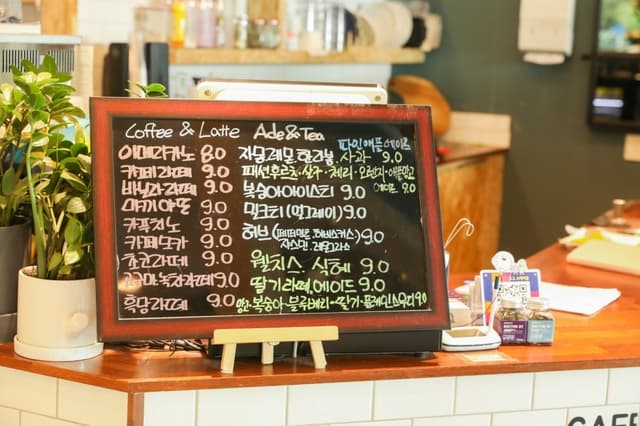 Coffee & Latte
아메리카노 8.0
카페라떼 9.0
바닐라라떼 9.0
마끼아또 9.0
카푸치노 9.0
카페모카 9.0
초코라떼 9.0
고구마.녹차라떼 9.0
흑당라떼 9.0
Ade&Tea
파인애플에이드
자몽.레몬.한라봉.사과 9.0
패션후르츠.살구.체리.오렌지.애플망고
에이드 9.0
복숭아아이스티 9.0
밀크티(얼그레이) 9.0
허브(페퍼민트.히비스커스) 9.0
자스민.레몬그라스
웰치스.식혜 9.0
딸기라떼,에이드 9.0
복숭아·블루베리·딸기·플레인스무디 9.0
CAFE